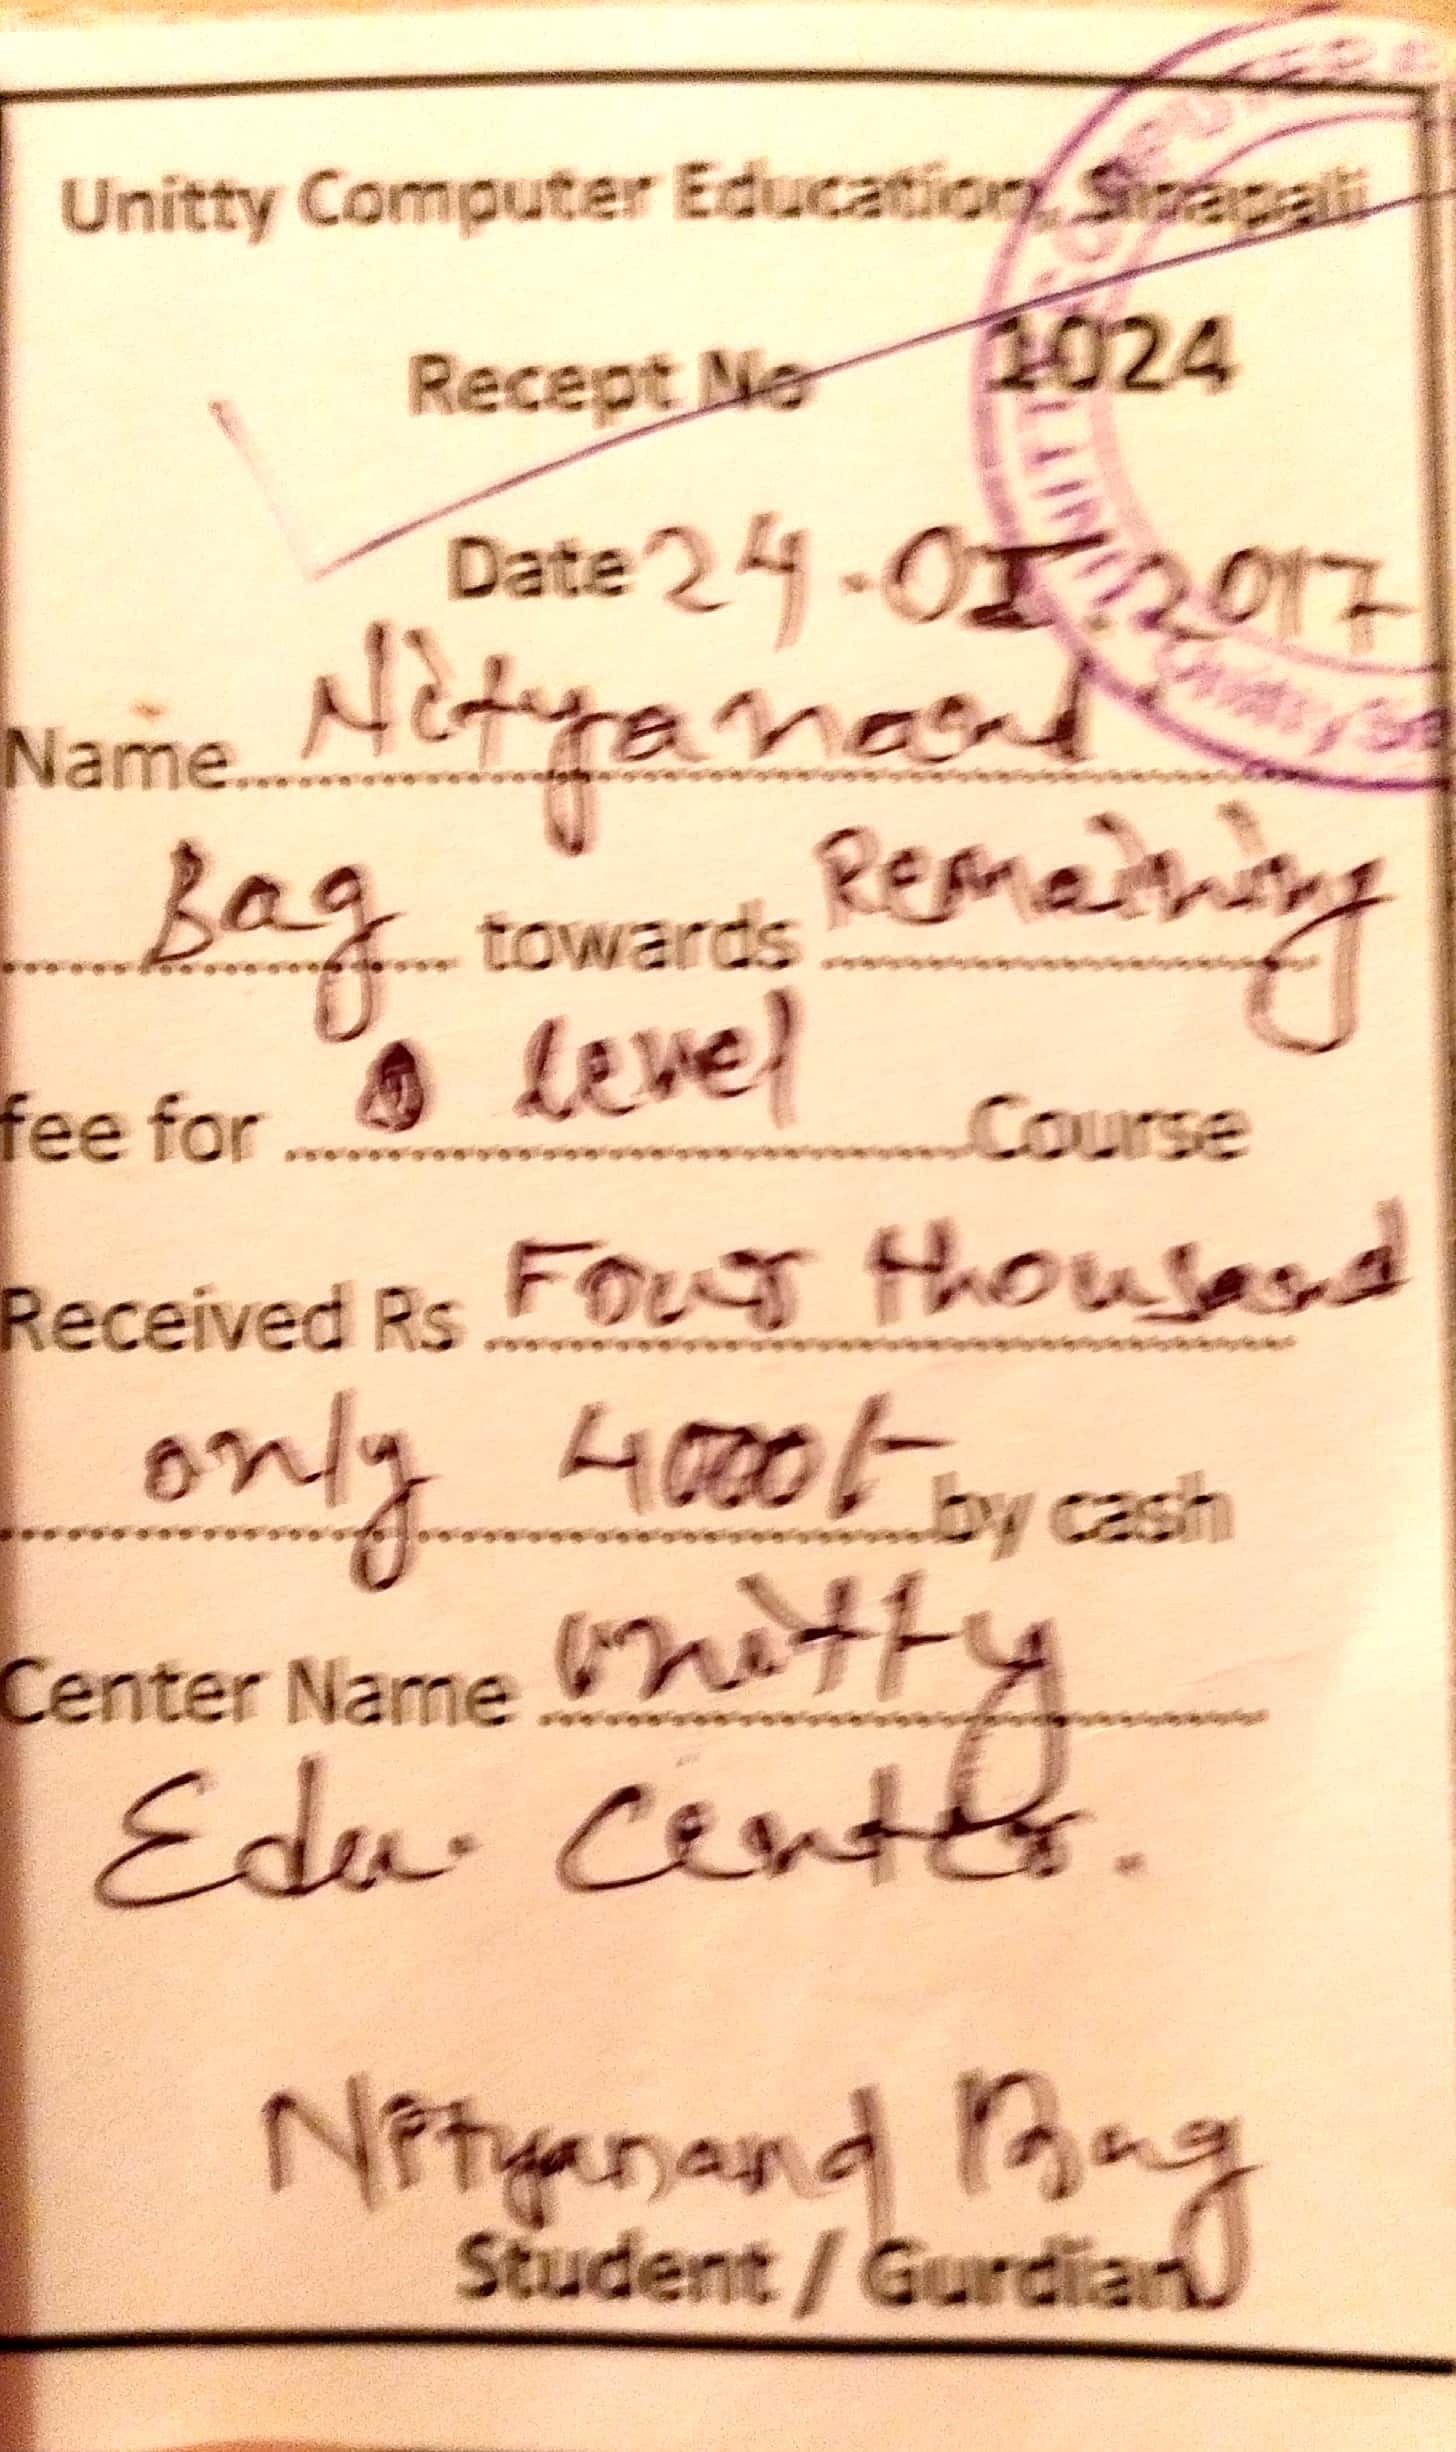 Unitty Computer Education, Sinapali
Recept No 1024
Date 24.01.2017
Name Nityanand
Bag towards Remaining
fee for O level Course
Received Rs Four thousand
only 4000/- by cash
Center Name Unitty
Edu. Center.
Nityanand Bag
Student / Gurdian